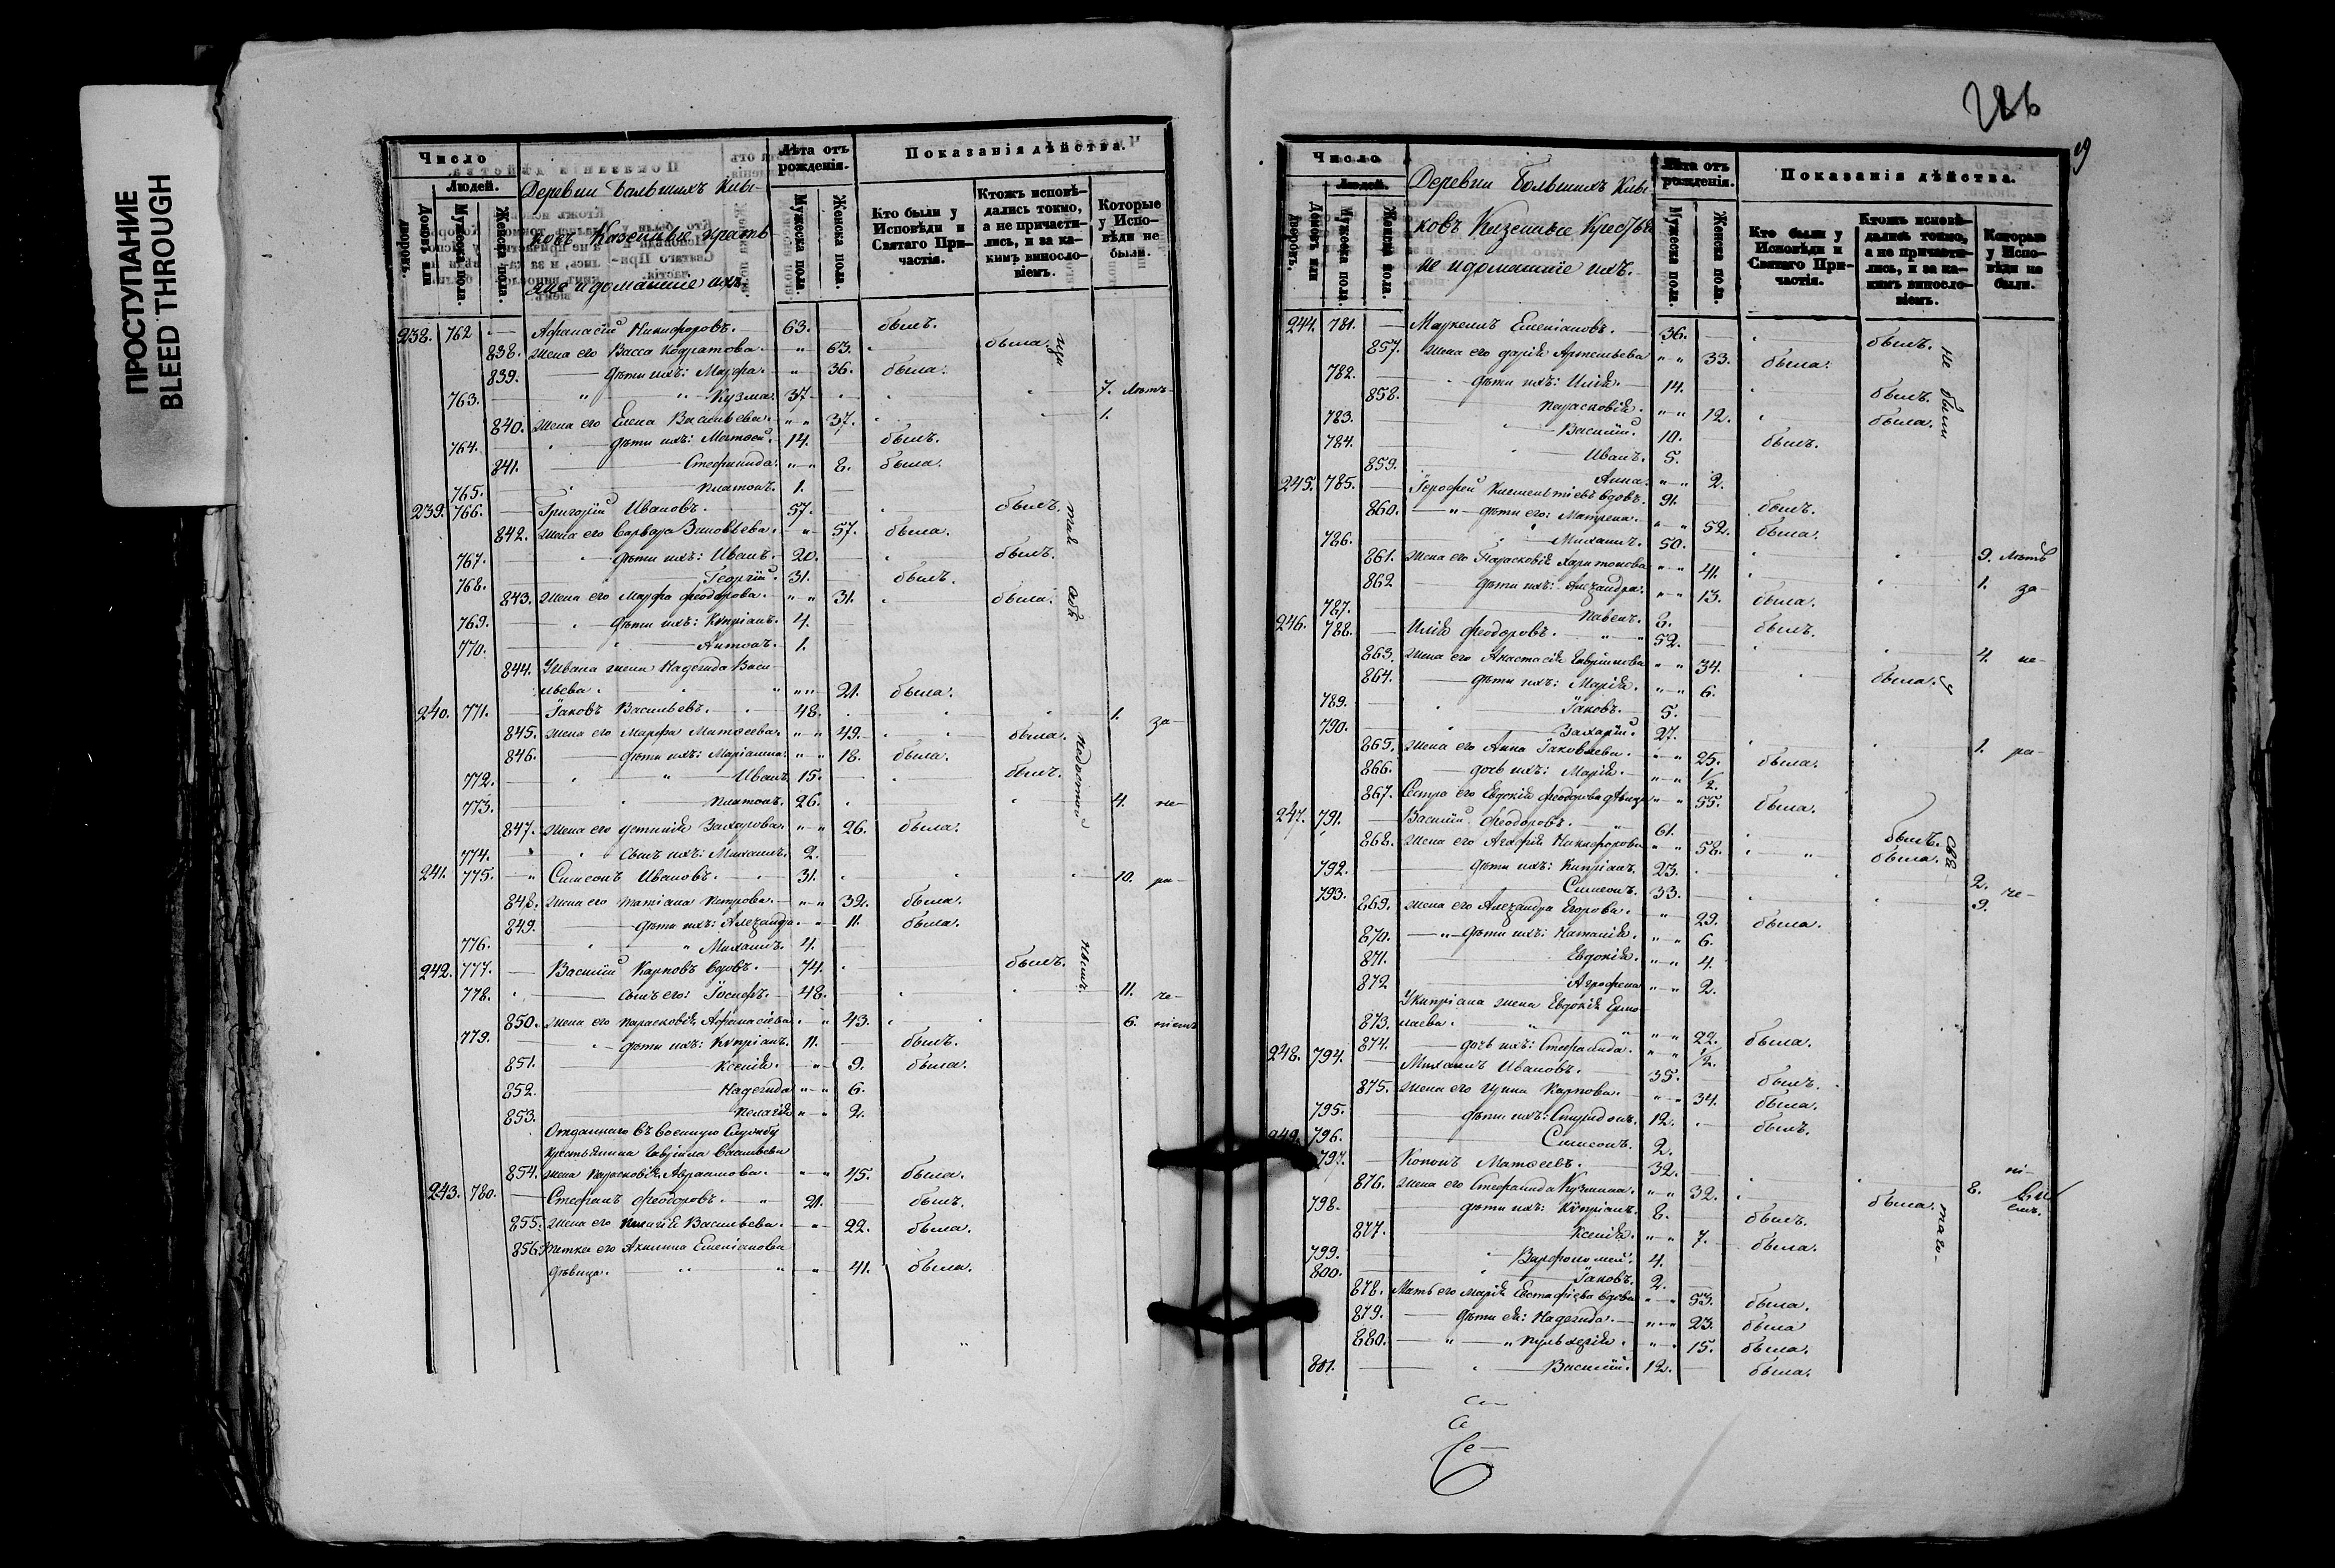 ПРОСТУПАНИЕ
BLEED THROUGH
Число
Людей.
Домовъ или дворовъ.
Мужеска пола.
Женска пола.
Деревни Большихъ Клы-
ковъ Казенные кресть
яне и домашніе ихъ.
Лѣта отъ рожденія.
Мужеска пола.
Женска пола.
Показанія дѣйства.
Кто были у Исповѣди и Святаго Причастія.
Ктожъ исповѣдались токмо, а не причастились, и за какимъ винословіемъ.
Которые у Исповѣди не были.
238. 762 Афанасій Никифоровъ. 63. былъ.
838. жена его Васса Кодратова. 63. была.
839. дѣти ихъ: Марфа. 36. была.
763. Кузма. 37 7. лѣтъ
840. жена его Елена Васильева. 37. 1.
764. дѣти ихъ: Матѳей. 14. былъ.
841. Стефанида. 8. была.
765. Платонъ. 1.
239. 766. Григорій Ивановъ. 57. былъ.
842. жена его Варвара Зиновьева. 57. была.
767. дѣти ихъ: Иванъ. 20. былъ.
768. Георгій. 31. былъ.
843. жена его Марфа Феодорова. 31. была.
769. дѣти ихъ: Кѵпріанъ. 4.
770. Антонъ. 1.
844. У Ивана жена Надежда Васи
льева. 21. была.
240. 771. Іаковъ Васильевъ. 48. 1. за-
845. жена его Марфа Матѳеева. 49. была.
846. дѣти ихъ: Маріанна. 18. была.
772. Иванъ. 15. былъ.
773. Платонъ. 26. 4. не-
847. жена его Устинія Захарова. 26. была.
774. сынъ ихъ: Михаилъ. 2.
241. 775. Симеонъ Ивановъ. 31. 10. ра-
848. жена его Татіана Петрова. 32. была.
849. дѣти ихъ: Александра. 11. была.
776. Михаилъ. 4.
242. 777. Василій Карповъ вдовъ. 74. былъ.
778. сынъ его: Іосифъ. 48. 11. че-
850. жена его Парасковія Афанасіева. 43. 6. ніемъ
779. дѣти ихъ: Кѵпріанъ. 11. былъ.
851. Ксенія. 9. была.
852. Надежда 6.
853. Пелагія 2.
Отданнаго въ военную службу
крестьянина Гавріила Васильева
854. жена Парасковія Авраамова. 45. была.
243. 780. Стефанъ Феодоровъ. 21. былъ.
855. жена его Пелагія Васильева. 22. была.
856. тетка его Акилина Емеліанова
дѣвица. 41. была.
Число
Людей.
Домовъ или дворовъ.
Мужеска пола.
Женска пола.
Деревни Большихъ Клы-
ковъ Казенные Крестья
не и домашніе ихъ.
Лѣта отъ рожденія.
Мужеска пола.
Женска пола.
Показанія дѣйства.
Кто были у Исповѣди и Святаго Причастія.
Ктожъ исповѣдались токмо, а не причастились, и за какимъ винословіемъ.
Которые у Исповѣди не были.
244. 781. Маркеллъ Емеліановъ. 36. былъ.
857. жена его Дарія Артемьева 33. была.
782. дѣти ихъ: Илія. 14. былъ.
858. Парасковія. 12. была.
783. Василій. 10. былъ.
784. Иванъ. 5.
859. Анна. 2.
245. 785. Іерофей Климентіевъ вдовъ. 91. былъ.
860. дѣти его: Матрена. 52. была.
786. Михаилъ. 50. 9. лѣтъ
861. жена его Парасковія Харитонова 41. 1. за-
862 дѣти ихъ: Александра. 13. была.
787. Павелъ. 8. былъ.
246. 788. Илія Феодоровъ. 52. 4. не-
863. жена его Анастасія Гаврилова 34. была.
864. дѣти ихъ: Марія. 6.
789. Іаковъ. 5.
790. Захарій. 27. 1. ра-
865. жена его Анна Іаковлева. 25. была.
866. дочь ихъ: Марія. 1/2.
867. Сестра его Евдокія Феодорова дѣвица 55. была.
247. 791. Василій Феодоровъ. 61. былъ.
868. жена его Агафія Никифорова 58. была.
792. дѣти ихъ: Кипріанъ. 23. 2. че-
793. Симеонъ. 33. 9.
869. жена его Александра Егорова. 29. была.
870. дѣти ихъ: Наталія. 6.
871. Евдокія. 4.
872 Агрофена 2.
У Кипріана жена Евдокія Ермо
873. лаева. 22. была.
874. дочь ихъ: Стефанида. 1/2.
248. 794. Михаилъ Ивановъ. 35. былъ.
875. жена его Ирина Карпова. 34. была.
795. дѣти ихъ: Спиридонъ. 12. былъ.
796. Симеонъ. 2.
249. 797. Кононъ Матѳеевъ. 32. 8. ні-
емъ.
876. жена его Стефанида Кузмина. 32. была.
798. дѣти ихъ: Кѵпріанъ. 8. былъ.
877. Ксенія. 7. была.
799. Варфоломей. 4.
800. Іаковъ. 2.
878. Мать его Марія Евстафіева вдова 53. была.
879. дѣти ея: Надежда. 23. была
880. Пульхерія. 15. была.
801. Василій. 12. была.